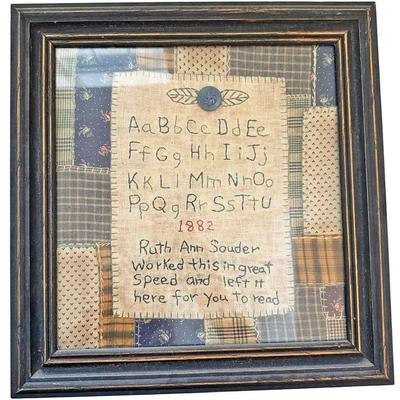 AaBbCcDdEe
FfGgHhIiJj
KkLlMmNnOo
PpQqRrSsTtU
1882
Ruth Ann Souder
Worked this in great
Speed and left it
here for you to read